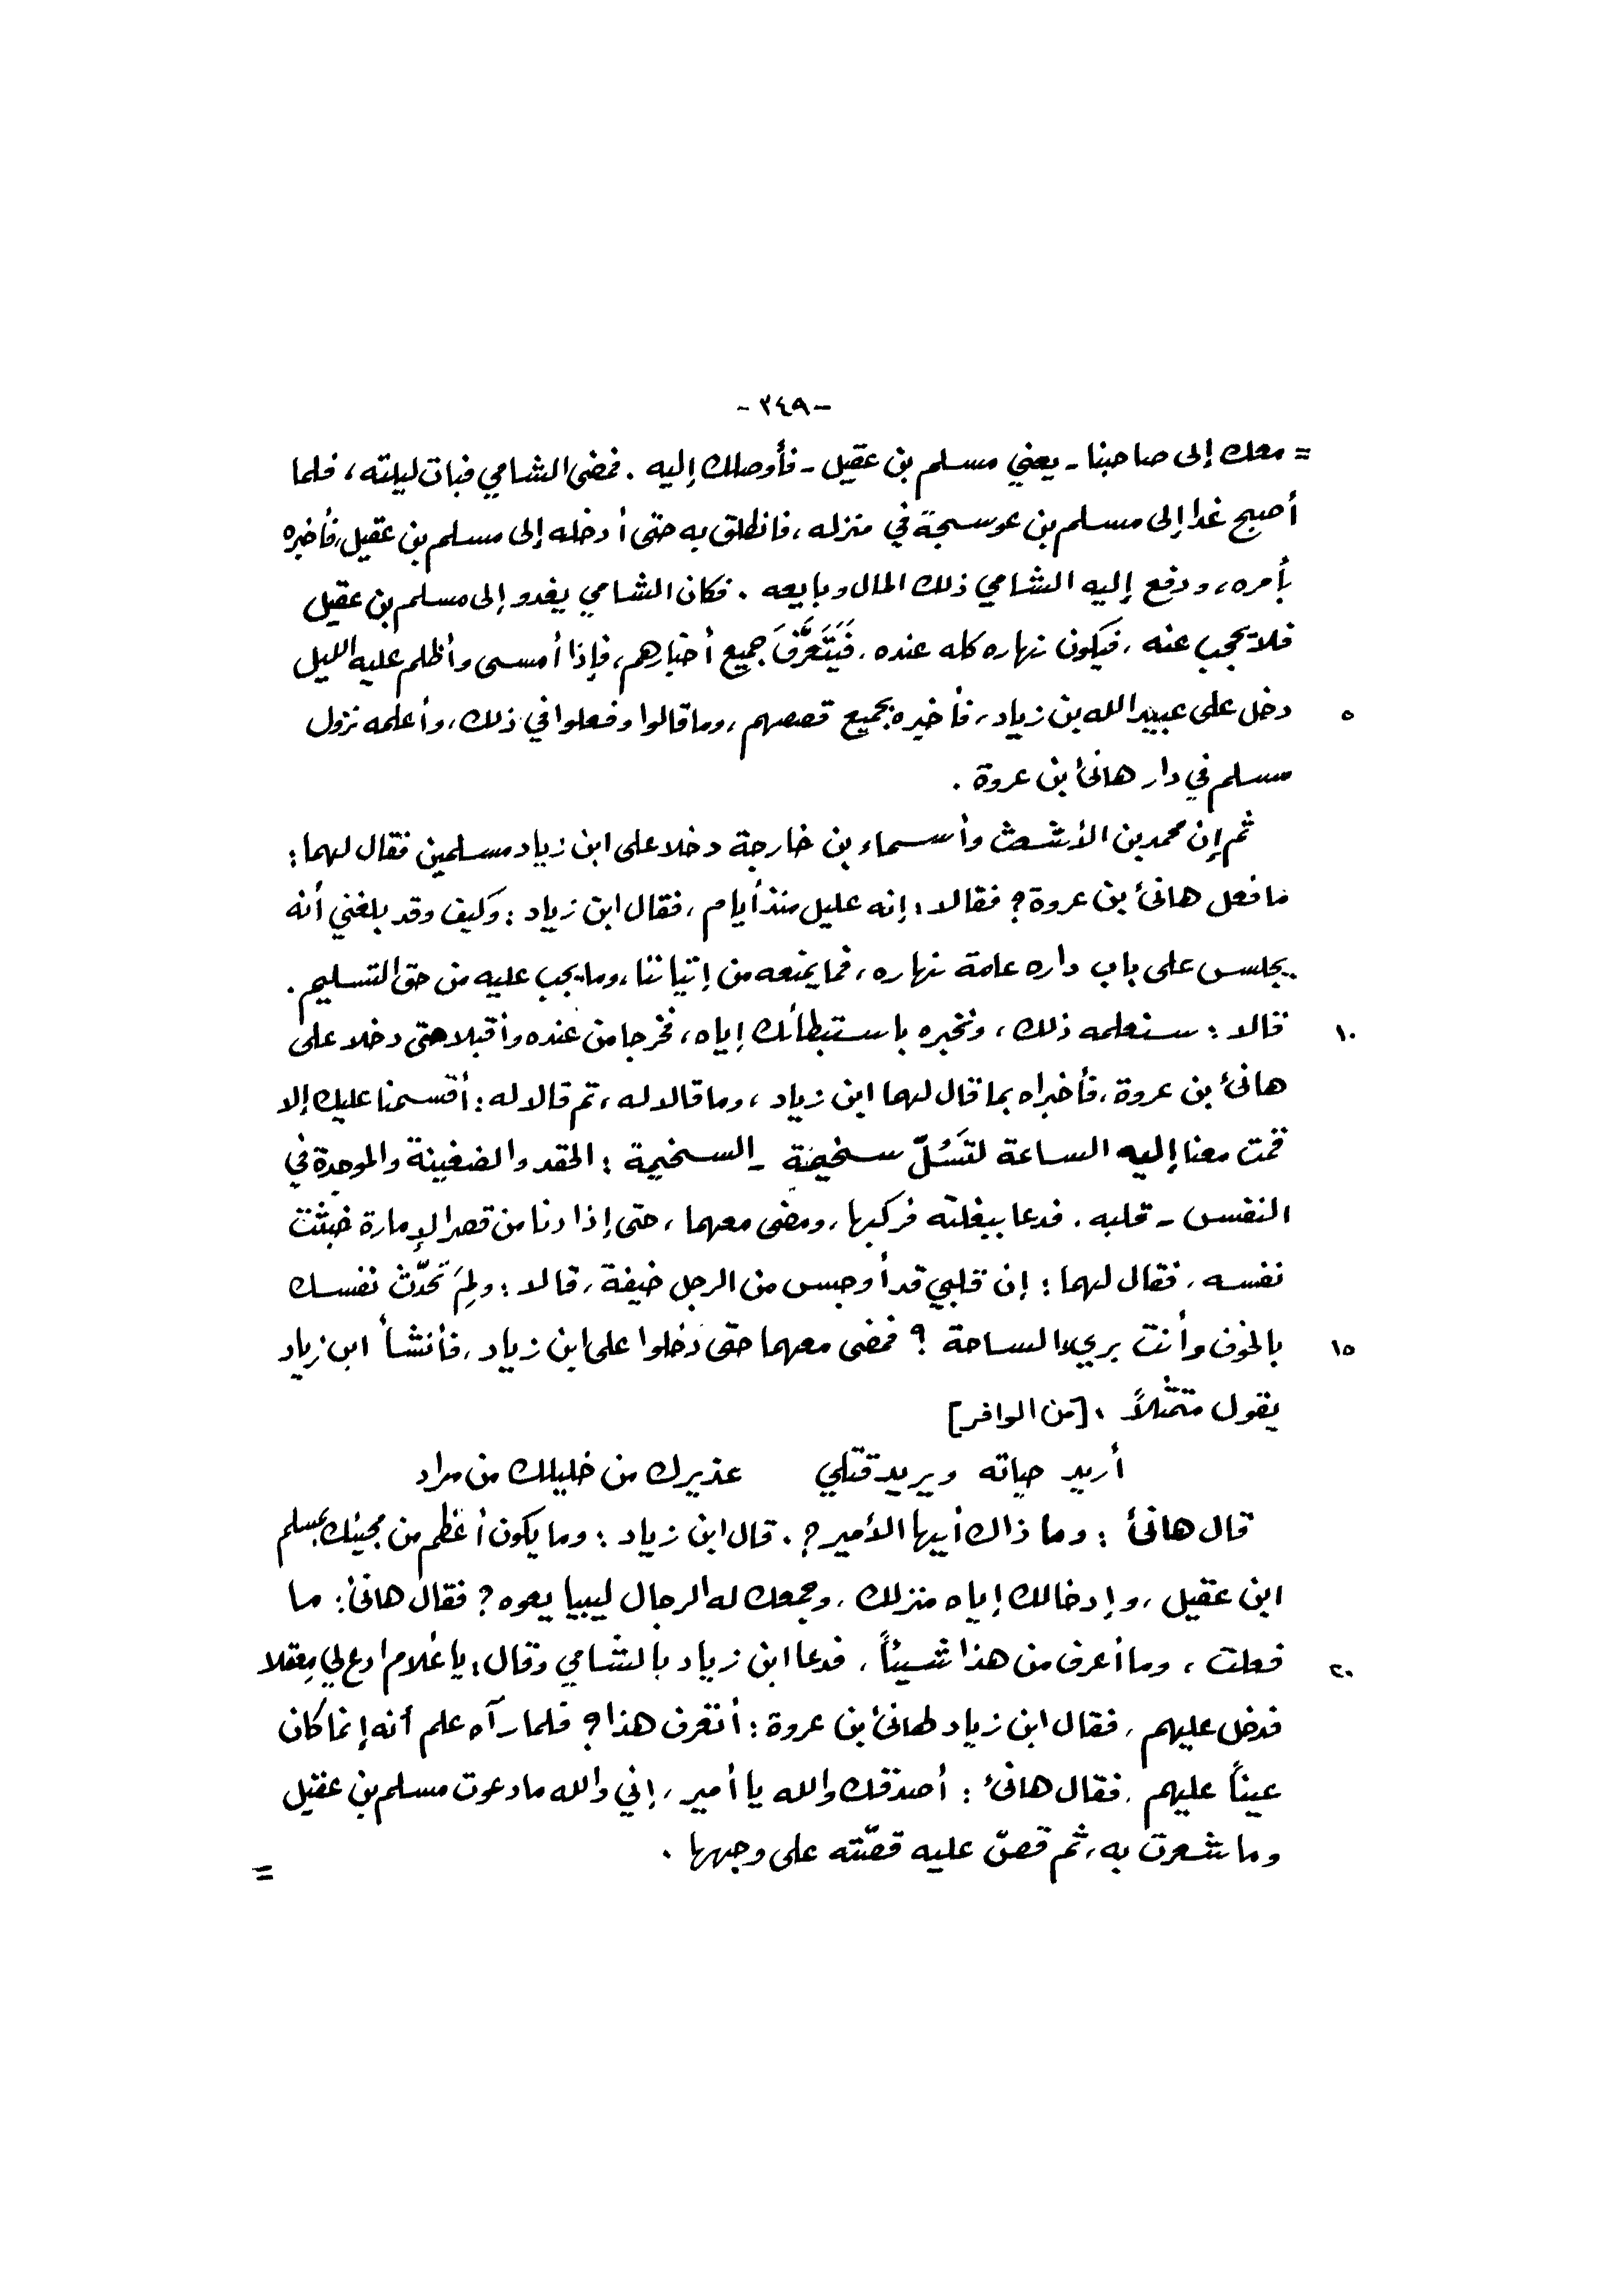 -٣٤٩-
= معك إلى صاحبنا - يعني مسلم بن عقيل - فأوصلك إليه . فمضى الشامي فبات ليلته ، فلما
أصبح غدا إلى مسلم بن عوسجة في منزله ، فانطلق به حتى أدخله إلى مسلم بن عقيل ، فأخبره
بأمره ، ودفع إليه الشامي ذلك المال وبايعه . فكان الشامي يغدو إلى مسلم بن عقيل
فلا يحجب عنه ، فيكون نهاره كله عنده ، فَيَتَعَرَّفَ جميع أخبارهم ، فإذا أمسى وأظلم عليه الليل
٥ دخل على عبيد الله بن زياد ، فأخبره بجميع قصصهم ، وما قالوا وفعلوا في ذلك ، وأعلمه نزول
مسلم في دار هانئ بن عروة .
ثم إن محمد بن الأشعث وأسماء بن خارجة دخلا على ابن زياد مسلمين فقال لهما :
ما فعل هانئ بن عروة ؟ فقالا : إنه عليل منذ أيام ، فقال ابن زياد : وكيف وقد بلغني أنه
يجلس على باب داره عامة نهاره ، فما يمنعه من إتياننا ، وما يجب عليه من حق التسليم .
١٠ قالا : سنعلمه ذلك ، ونخبره باستبطائك إياه ، فخرجا من عنده وأقبلا حتى دخلا على
هانئ بن عروة ، فأخبراه بما قال لهما ابن زياد ، وما قالا له ، ثم قالا له : أقسمنا عليك إلا
قمت معنا إليه الساعة لتَسُلّ سخيمة - السخيمة : الحقد والضغينة والموجدة في
النفس - قلبه . فدعا ببغلته فركبها ، ومضى معهما ، حتى إذا دنا من قصر الإمارة خبثت
نفسه ، فقال لهما : إن قلبي قد أوجس من الرجل خيفة ، قالا : ولِمَ تحدّث نفسك
١٥ بالخوف وأنت بريء الساحة ؟ فمضى معهما حتى دخلوا على ابن زياد ، فأنشأ ابن زياد
يقول متمثّلاً : [من الوافر]
أريد حياته ويريد قتلي عذيرك من خليلك من مراد
قال هانئ : وما ذاك أيها الأمير ؟ . قال ابن زياد : وما يكون أعظم من مجيئك بمسلم
ابن عقيل ، وإدخالك إياه منزلك ، وجمعك له الرجال ليبايعوه ؟ فقال هانئ : ما
٢٠ فعلت ، وما أعرف من هذا شيئاً ، فدعا ابن زياد بالشامي وقال : يا غلام ادع لي مِعقلا
فدخل عليهم ، فقال ابن زياد لهانئ بن عروة : أتعرف هذا ؟ فلما رآه علم أنه إنما كان
عيناً عليهم ، فقال هانئ : أصدقك والله يا أمير ، إني والله ما دعوت مسلم بن عقيل
وما شعرت به ، ثم قصّ عليه قصّته على وجهها .
=